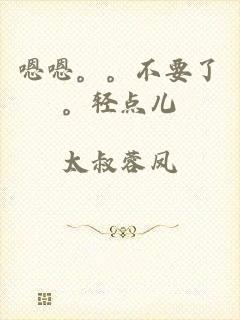 嗯嗯。。不要了
。轻点儿
太叔蓉凤